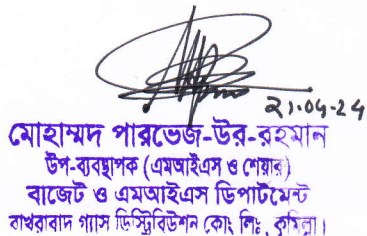 ২১-০৭-২৪
মোহাম্মদ পারভেজ-উর-রহমান
উপ-ব্যবস্থাপক (এমআইএস ও শেয়ার)
বাজেট ও এমআইএস ডিপার্টমেন্ট
বাখরাবাদ গ্যাস ডিস্ট্রিবিউশন কোং লিঃ, কুমিল্লা।